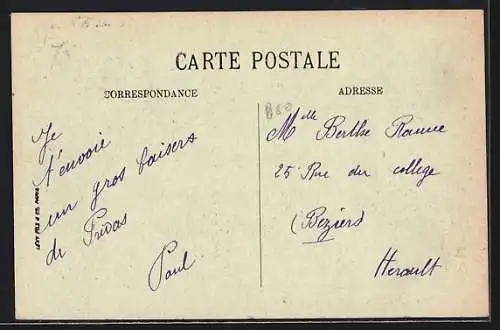 CARTE POSTALE
CORRESPONDANCE
ADRESSE
Je
t'envoie
un gros baisers
de Privas
Paul
Melle Berthe
25 Rue du college
(Beziers)
Herault
LEVY FILS & CIE PARIS